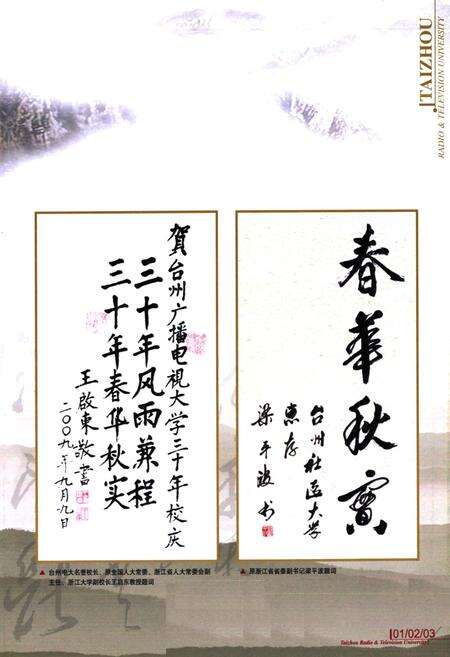 TAIZHOU
RADIO & TELEVISION UNIVERSITY
春華秋實
台州社区大学
惠存
梁平波书
賀台州广播电視大学三十年校庆
三十年风雨兼程
三十年春华秋实
王啟東敬書
二〇〇九年九月九日
▲ 台州电大名誉校长、原全国人大常委、浙江省人大常委会副
主任、浙江大学副校长王启东教授题词
▲ 原浙江省省委副书记梁平波题词
01/02/03
Taizhou Radio & Television University